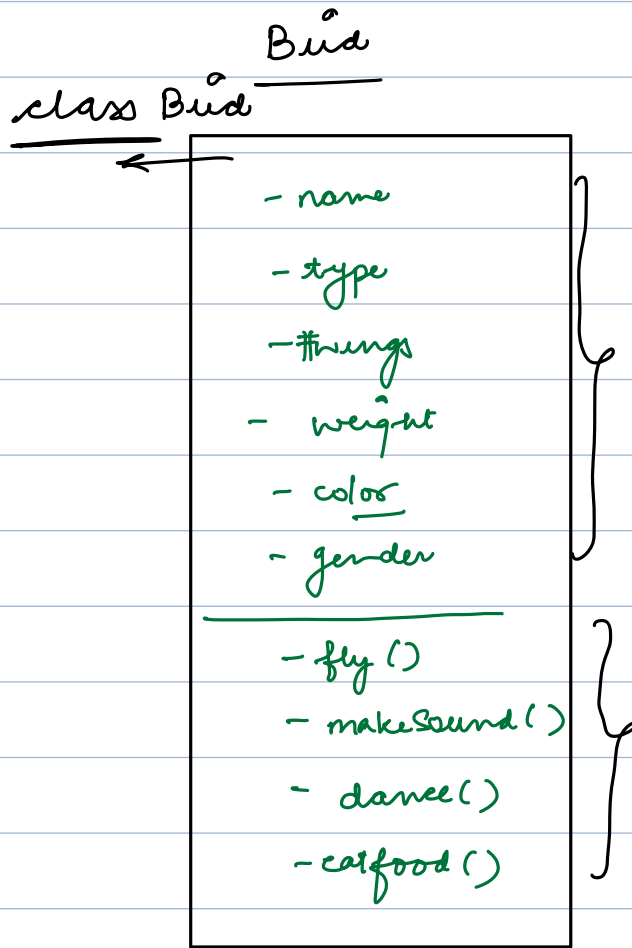 Bird
class Bird
- name
- type
- #wings
- weight
- color
- gender
- fly ()
- makeSound ()
- dance ()
- eatfood ()